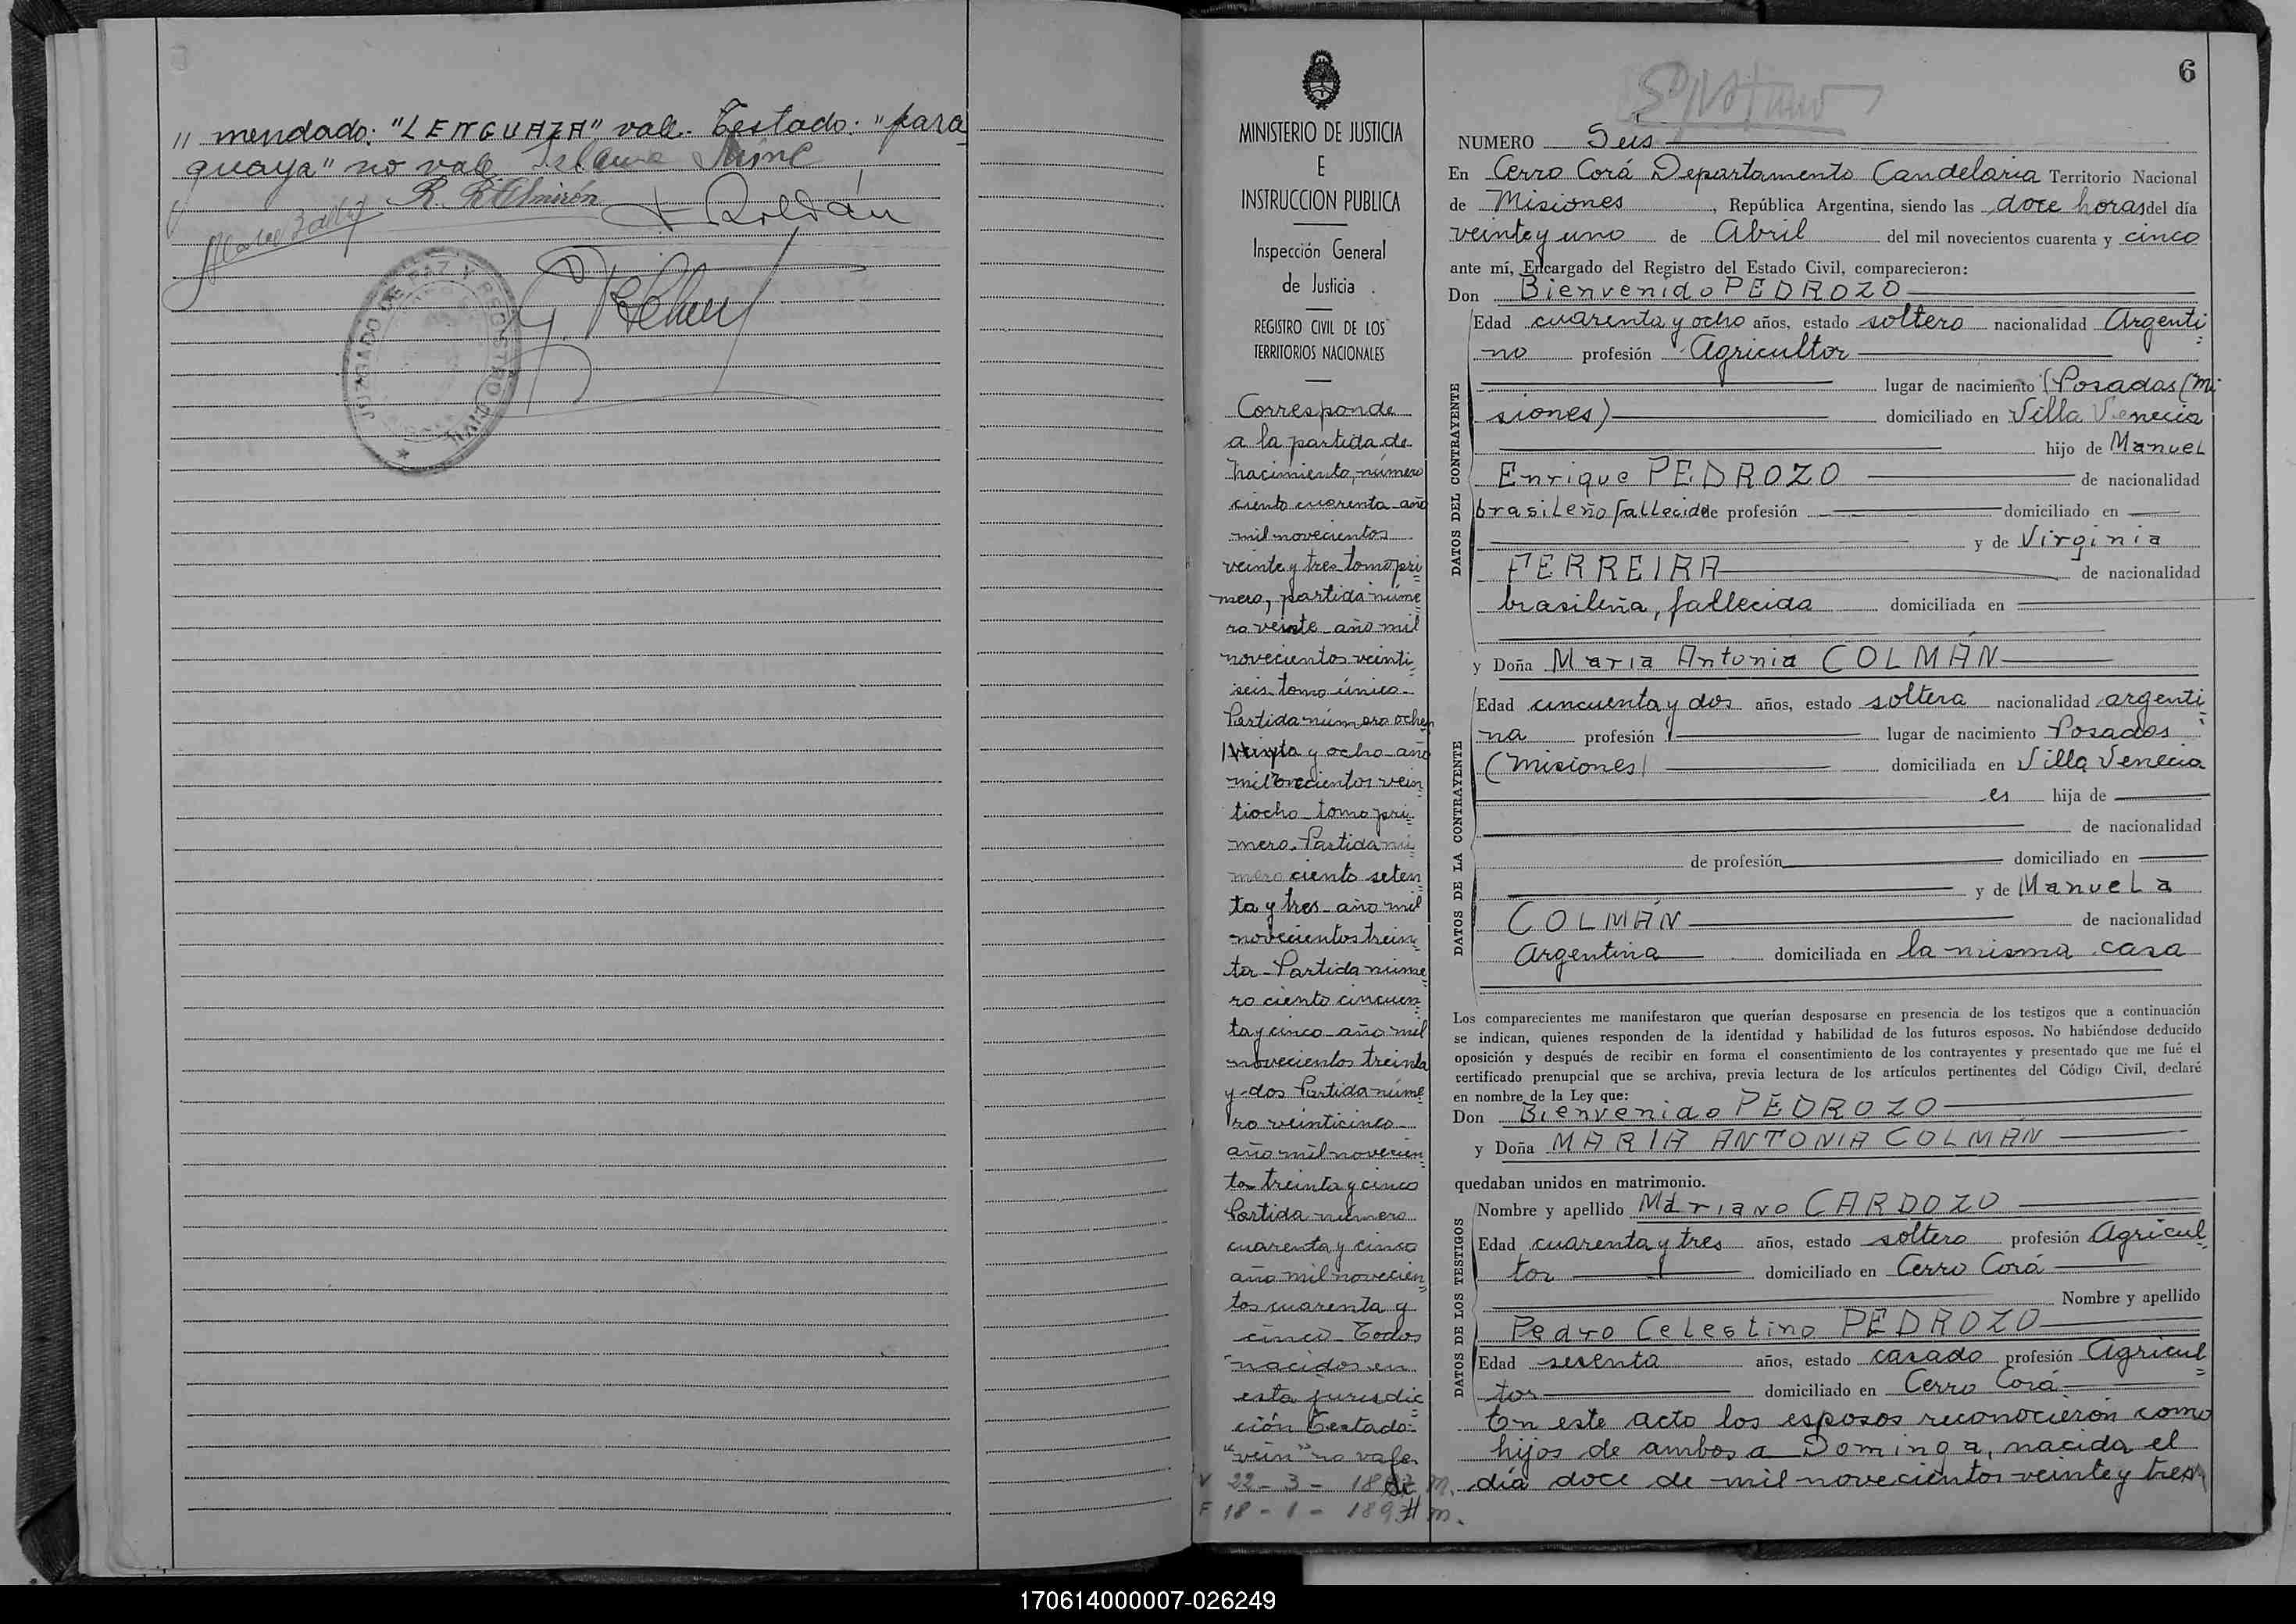 // mendado: "LENGUAZA" vale. Testado: "para
guaya" no vale
R. R. Almirón
+ Roldán
JUZGADO DE PAZ Y REGISTRO CIVIL
MINISTERIO DE JUSTICIA
E
INSTRUCCION PUBLICA
Inspección General
de Justicia
REGISTRO CIVIL DE LOS
TERRITORIOS NACIONALES
Corresponde
a la partida de
nacimiento, número
ciento cuarenta año
mil novecientos
veinte y tres tomo pri
mero, partida núme
ro veinte año mil
novecientos veinti
seis tomo único
Partida número ochen
y ocho año
mil novecientos vein
tiocho tomo pri
mero. Partida nú
mero ciento seten
ta y tres año mil
novecientos trein
ta - Partida núme
ro ciento cincuen
ta y cinco año mil
novecientos treinta
y dos Partida núme
ro veinticinco
año mil novecien
to treinta y cinco
Partida número
cuarenta y cinco
año mil novecien
tos cuarenta y
cinco - Todos
nacidos en
esta jurisdic
ción Testado:
"vein" no vale
V 22 - 3 - 18 M.
F 18 - 1 - 189 m.
6
NUMERO Seis
En Cerro Corá Departamento Candelaria Territorio Nacional
de Misiones, República Argentina, siendo las doce horas del día
veinte y uno de Abril del mil novecientos cuarenta y cinco
ante mí, Encargado del Registro del Estado Civil, comparecieron:
Don Bienvenido PEDROZO
DATOS DEL CONTRAYENTE
Edad cuarenta y ocho años, estado soltero nacionalidad Argenti
no profesión Agricultor
lugar de nacimiento Posadas (Mi
siones) domiciliado en Villa Venecia
hijo de Manuel
Enrique PEDROZO de nacionalidad
brasileño fallecido de profesión domiciliado en
y de Virginia
FERREIRA de nacionalidad
brasileña, fallecida domiciliada en
y Doña Maria Antonia COLMÁN
DATOS DE LA CONTRAYENTE
Edad cincuenta y dos años, estado soltera nacionalidad argenti
na profesión lugar de nacimiento Posadas
(Misiones) domiciliada en Villa Venecia
es hija de
de nacionalidad
de profesión domiciliado en
y de Manuela
COLMÁN de nacionalidad
Argentina domiciliada en la misma casa
Los comparecientes me manifestaron que querían desposarse en presencia de los testigos que a continuación
se indican, quienes responden de la identidad y habilidad de los futuros esposos. No habiéndose deducido
oposición y después de recibir en forma el consentimiento de los contrayentes y presentado que me fué el
certificado prenupcial que se archiva, previa lectura de los artículos pertinentes del Código Civil, declaré
en nombre de la Ley que:
Don Bienvenido PEDROZO
y Doña MARIA ANTONIA COLMÁN
quedaban unidos en matrimonio.
DATOS DE LOS TESTIGOS
Nombre y apellido Mariano CARDOZO
Edad cuarenta y tres años, estado soltero profesión Agricul
tor domiciliado en Cerro Corá
Nombre y apellido
Pedro Celestino PEDROZO
Edad sesenta años, estado casado profesión Agricul
tor domiciliado en Cerro Corá
En este acto los esposos reconocieron como
hijos de ambos a Dominga, nacida el
día doce de mil novecientos veinte y tres
170614000007-026249